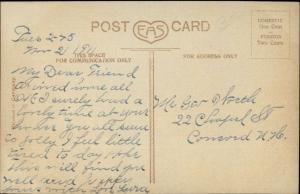 POST CARD
EAS
DOMESTIC
One Cent
FOREIGN
Two Cents
THIS SPACE
FOR COMMUNICATION ONLY
FOR ADDRESS ONLY
Nov 21 1911
My Dear Friend
Arrived home all
surely had a
lovely time at your
house you all seem
so jolly I feel little
tired to day hope
this will find you
well and
yours with Love
Mr Geo North
22 Chapel St
Concord N.H.